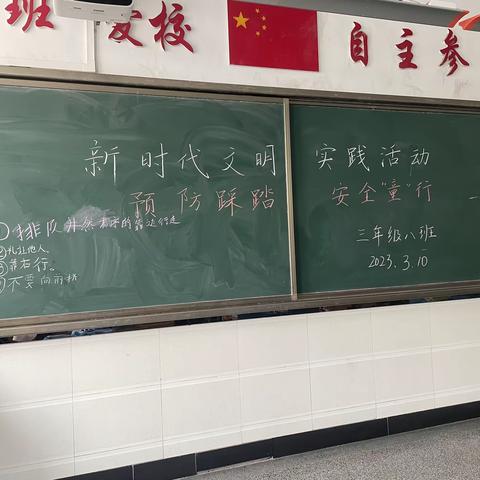 班 爱校 自主参
新时代文明 实践活动
预防踩踏 安全"童"行
三年级八班
2023.3.10
①排队井然有序的靠边行走
②礼让他人。
③靠右行。
④不要向前挤